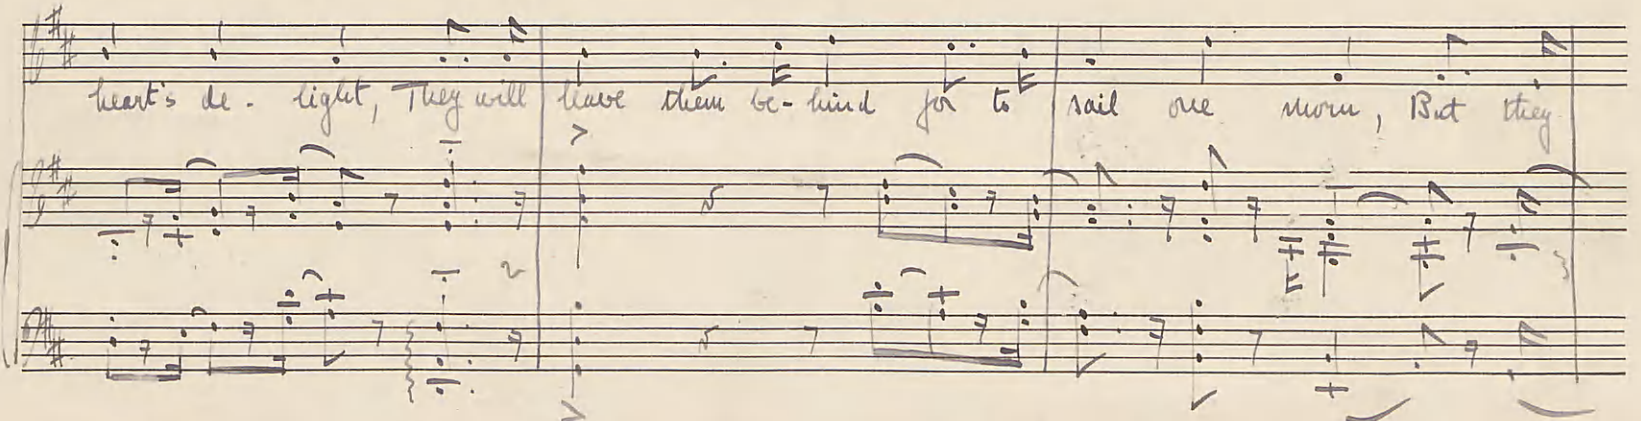 heart's de - light, They will leave them be - hind for to sail one morn, But they